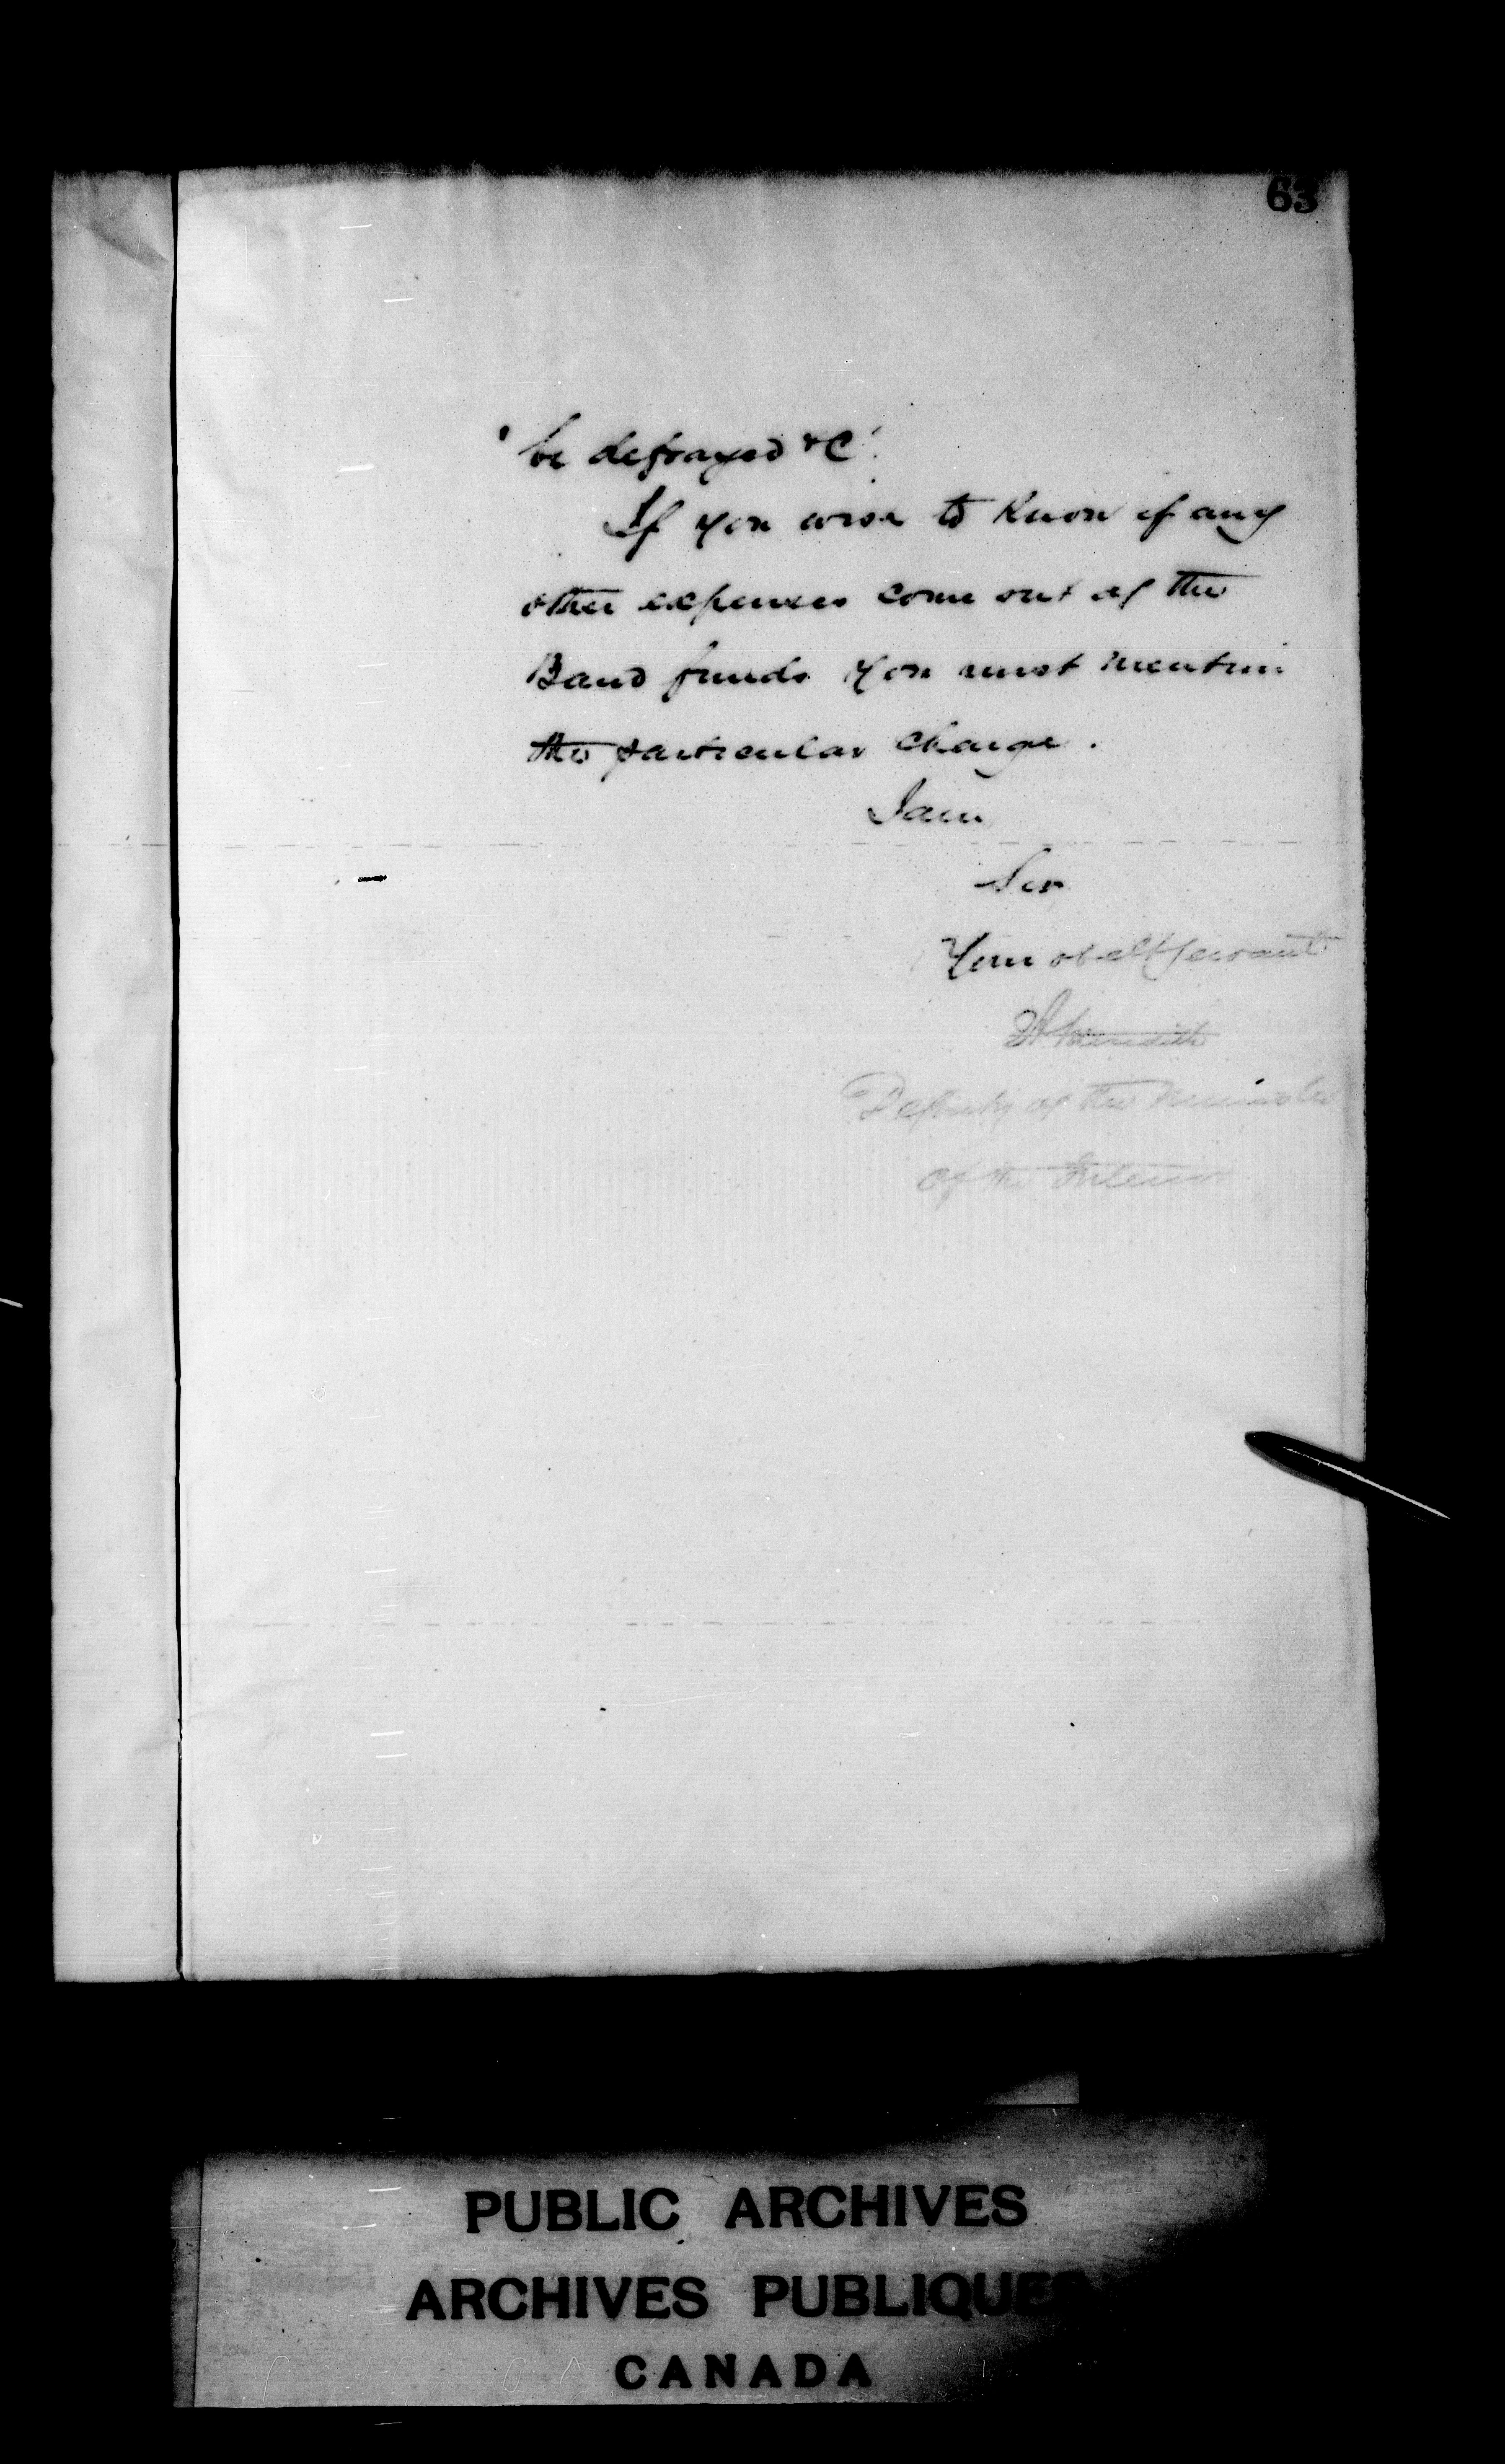 63
' be defrayed &C'.
If you wish to know if any
other expenses come out of the
Band funds you must mention
the particular charge.
I am
Sir
Your obedt Servant
Meredith
Deputy of the Minister
of the Interior
PUBLIC ARCHIVES
ARCHIVES PUBLIQUES
CANADA